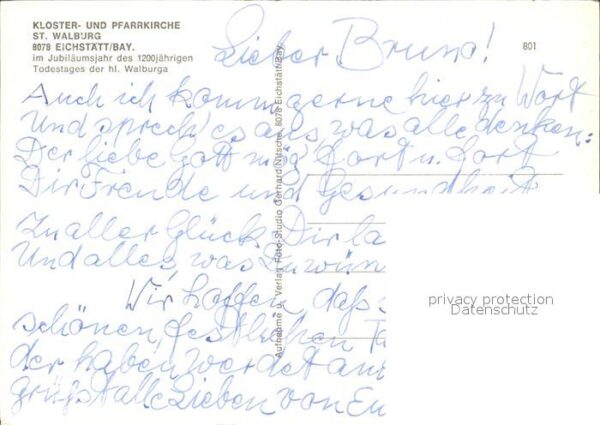 KLOSTER- UND PFARRKIRCHE
ST. WALBURG
8078 EICHSTÄTT/BAY.
im Jubiläumsjahr des 1200jährigen
Todestages der hl. Walburga
801
Lieber Bruno!
Auch ich komm gerne hier zu Wort
Und sprech' es aus was alle denken:
Der liebe Gott mög' fort u. fort
Dir Freude und Gesundheit
Zu aller Glück Dir
Und alles, was Du
Wir hoffen, daß
schönen, festlichen
der haben werdet
grüßt alle Lieben von
Aufnahme u. Verlag Foto-Studio Gerhard Nitsche, 8078 Eichstätt/Bay.
privacy protection
Datenschutz